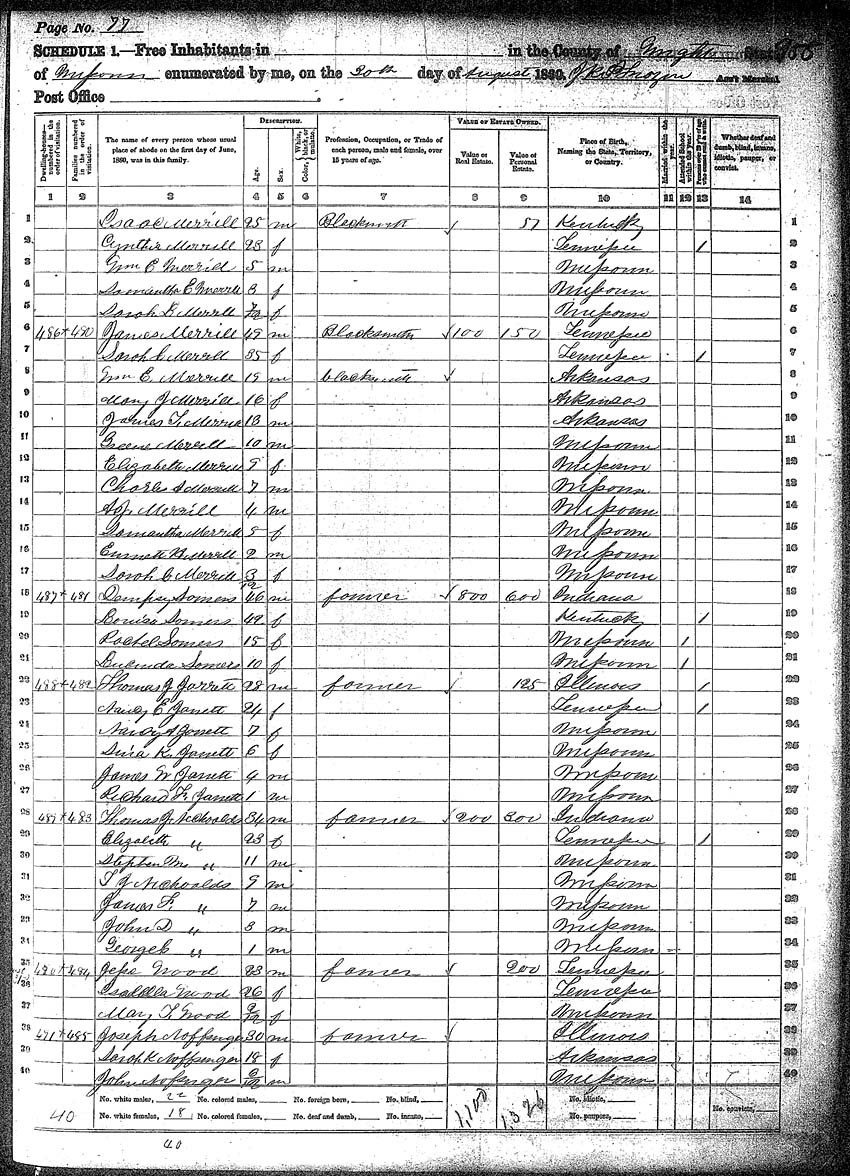 Page No. 77
SCHEDULE 1.—Free Inhabitants in in the County of Wright State
of Missouri enumerated by me, on the 20th day of August 1860. Ass't Marshal.
Post Office
DESCRIPTION. VALUE OF ESTATE OWNED.
Dwelling-houses—numbered in the order of visitation. Families numbered in the order of visitation. The name of every person whose usual place of abode on the first day of June, 1860, was in this family. Age. Sex. Color, White, black, or mulatto. Profession, Occupation, or Trade of each person, male and female, over 15 years of age. Value of Real Estate. Value of Personal Estate. Place of Birth, Naming the State, Territory, or Country. Married within the year. Attended School within the year. Persons over 20 y'rs of age who cannot read & write. Whether deaf and dumb, blind, insane, idiotic, pauper, or convict.
1 2 3 4 5 6 7 8 9 10 11 12 13 14
1 Isaac Merrill 25 m Blacksmith 57 Kentucky 1
2 Cynthia Merrill 23 f Tennessee 1 2
3 Wm E Merrill 5 m Missouri 3
4 Samantha E Merrill 3 f Missouri 4
5 Sarah Merrill 7/12 f Missouri 5
6 486 480 James Merrill 49 m Blacksmith 100 150 Tennessee 6
7 Sarah C Merrill 35 f Tennessee 1 7
8 Wm E. Merrill 19 m blacksmith Arkansas 8
9 Mary J Merrill 16 f Arkansas 9
10 James T. Merrill 13 m Arkansas 10
11 Greene Merrill 10 m Missouri 11
12 Elizabeth Merrill 9 f Missouri 12
13 Charles S Merrill 7 m Missouri 13
14 Merrill 4 m Missouri 14
15 Samantha Merrill 5 f Missouri 15
16 Emmett B. Merrill 2 m Missouri 16
17 Sarah C Merrill 3/12 f Missouri 17
18 487 481 Dempsy Somers 46 m farmer 800 600 Indiana 18
19 Louisa Somers 49 f Kentucky 1 19
20 Rachel Somers 15 f Missouri 1 20
21 Lucinda Somers 10 f Missouri 1 21
22 488 482 Thomas J Jarrett 28 m farmer 125 Illinois 1 22
23 Nancy E Jarrett 24 f Tennessee 1 23
24 Nancy A Jarrett 7 f Missouri 24
25 K. Jarrett 6 f Missouri 25
26 James W Jarrett 4 m Missouri 26
27 Richard F. Jarrett 1 m Missouri 27
28 489 483 Thomas J. Nichoalds 34 m farmer 200 300 Indiana 28
29 Elizabeth " 23 f Tennessee 1 29
30 Stephen M " 11 m Missouri 30
31 T J Nichoalds 9 m Missouri 31
32 James F. " 7 m Missouri 32
33 John D " 3 m Missouri 33
34 George C " 1 m Missouri 34
35 490 484 Jesse Wood 23 m farmer 200 Tennessee 35
36 Isabella Wood 26 f Tennessee 36
37 Mary T Wood 9/12 f Missouri 37
38 491 485 Joseph Noffsinger 30 m farmer Illinois 38
39 Sarah K Noffsinger 18 f Arkansas 39
40 John Nofsinger m Missouri 40
No. white males, 22 No. colored males, No. foreign born, No. blind, 1,100 1,326 No. idiotic,
40 No. white females, 18 No. colored females, No. deaf and dumb, No. insane, No. paupers, No. convicts,
40